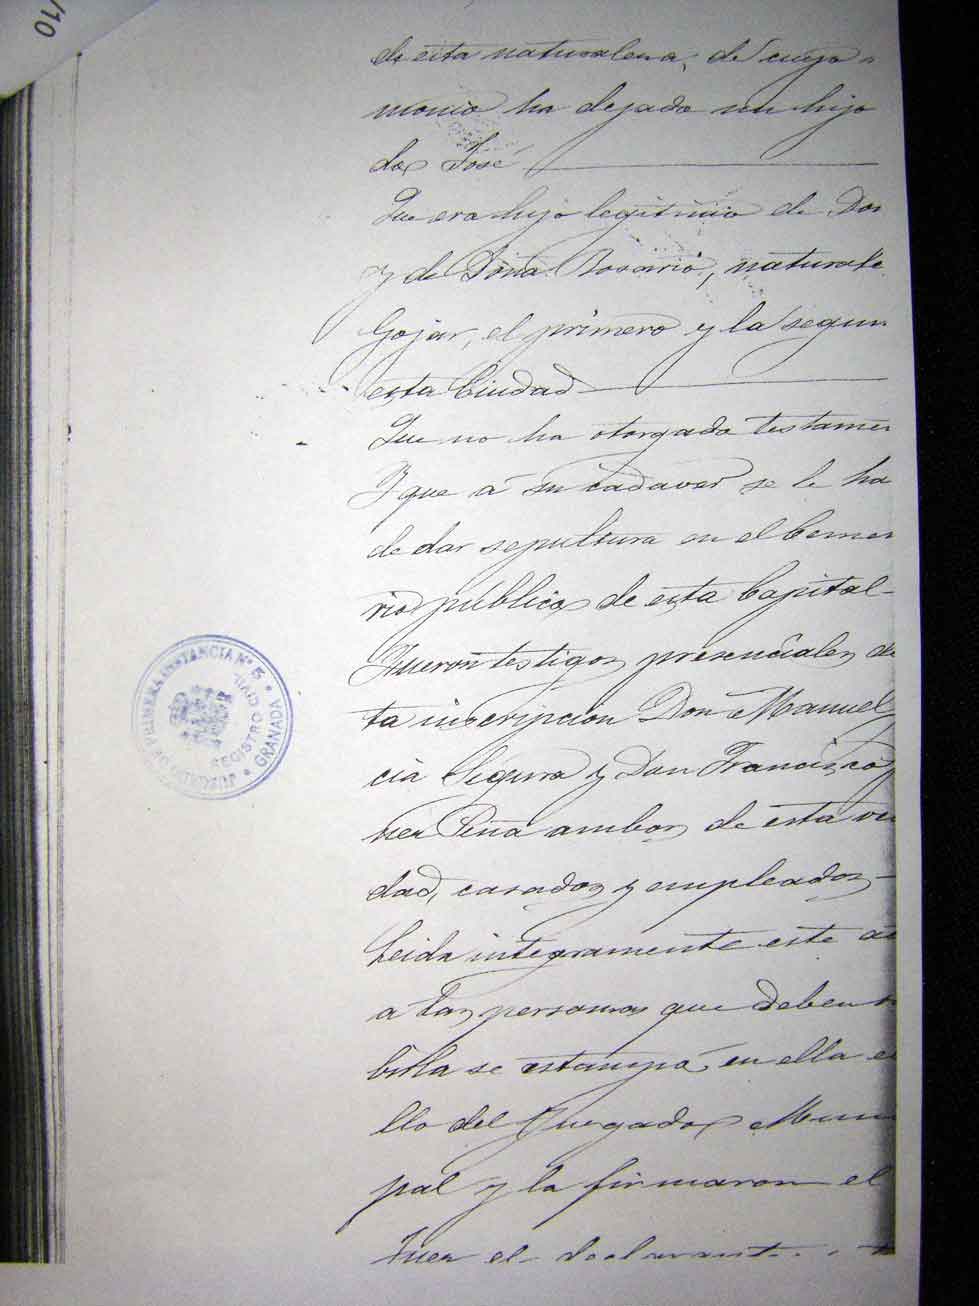 /10
de esta naturaleza, de cuyo
monio ha dejado un hijo
do José
Que era hijo legitimo de Don
y de Doña Rosario, naturale
Gojar, el primero y la segun
esta Ciudad
Que no ha otorgado testamen
Y que á su cadaver se le ha
de dar sepultura en el Cemen
rio publico de esta Capital-
Fueron testigos presenciales de
ta inscripcion Don Manuel
cia Segura y Don Francisco
Peña ambos de esta ve
dad, casados y empleados-
Leida integramente este ac
a las personas que deben
birla se estampó en ella el
llo del Juzgado Muni
pal y la firmaron el
Juez el declarante
JUZGADO DE PRIMERA INSTANCIA Nº 5 • GRANADA •
REGISTRO CIVIL